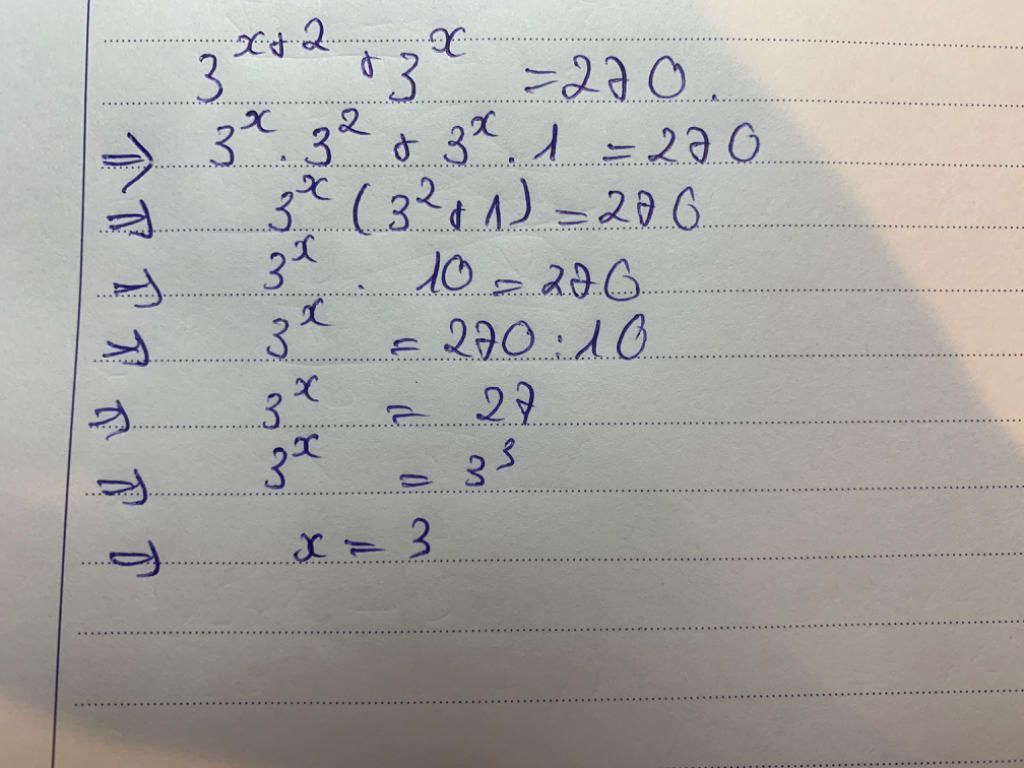 3^{x+2} + 3^x = 270.
⇒ 3^x . 3^2 + 3^x . 1 = 270
⇒ 3^x (3^2 + 1) = 270
⇒ 3^x . 10 = 270
⇒ 3^x = 270 : 10
⇒ 3^x = 27
⇒ 3^x = 3^3
⇒ x = 3